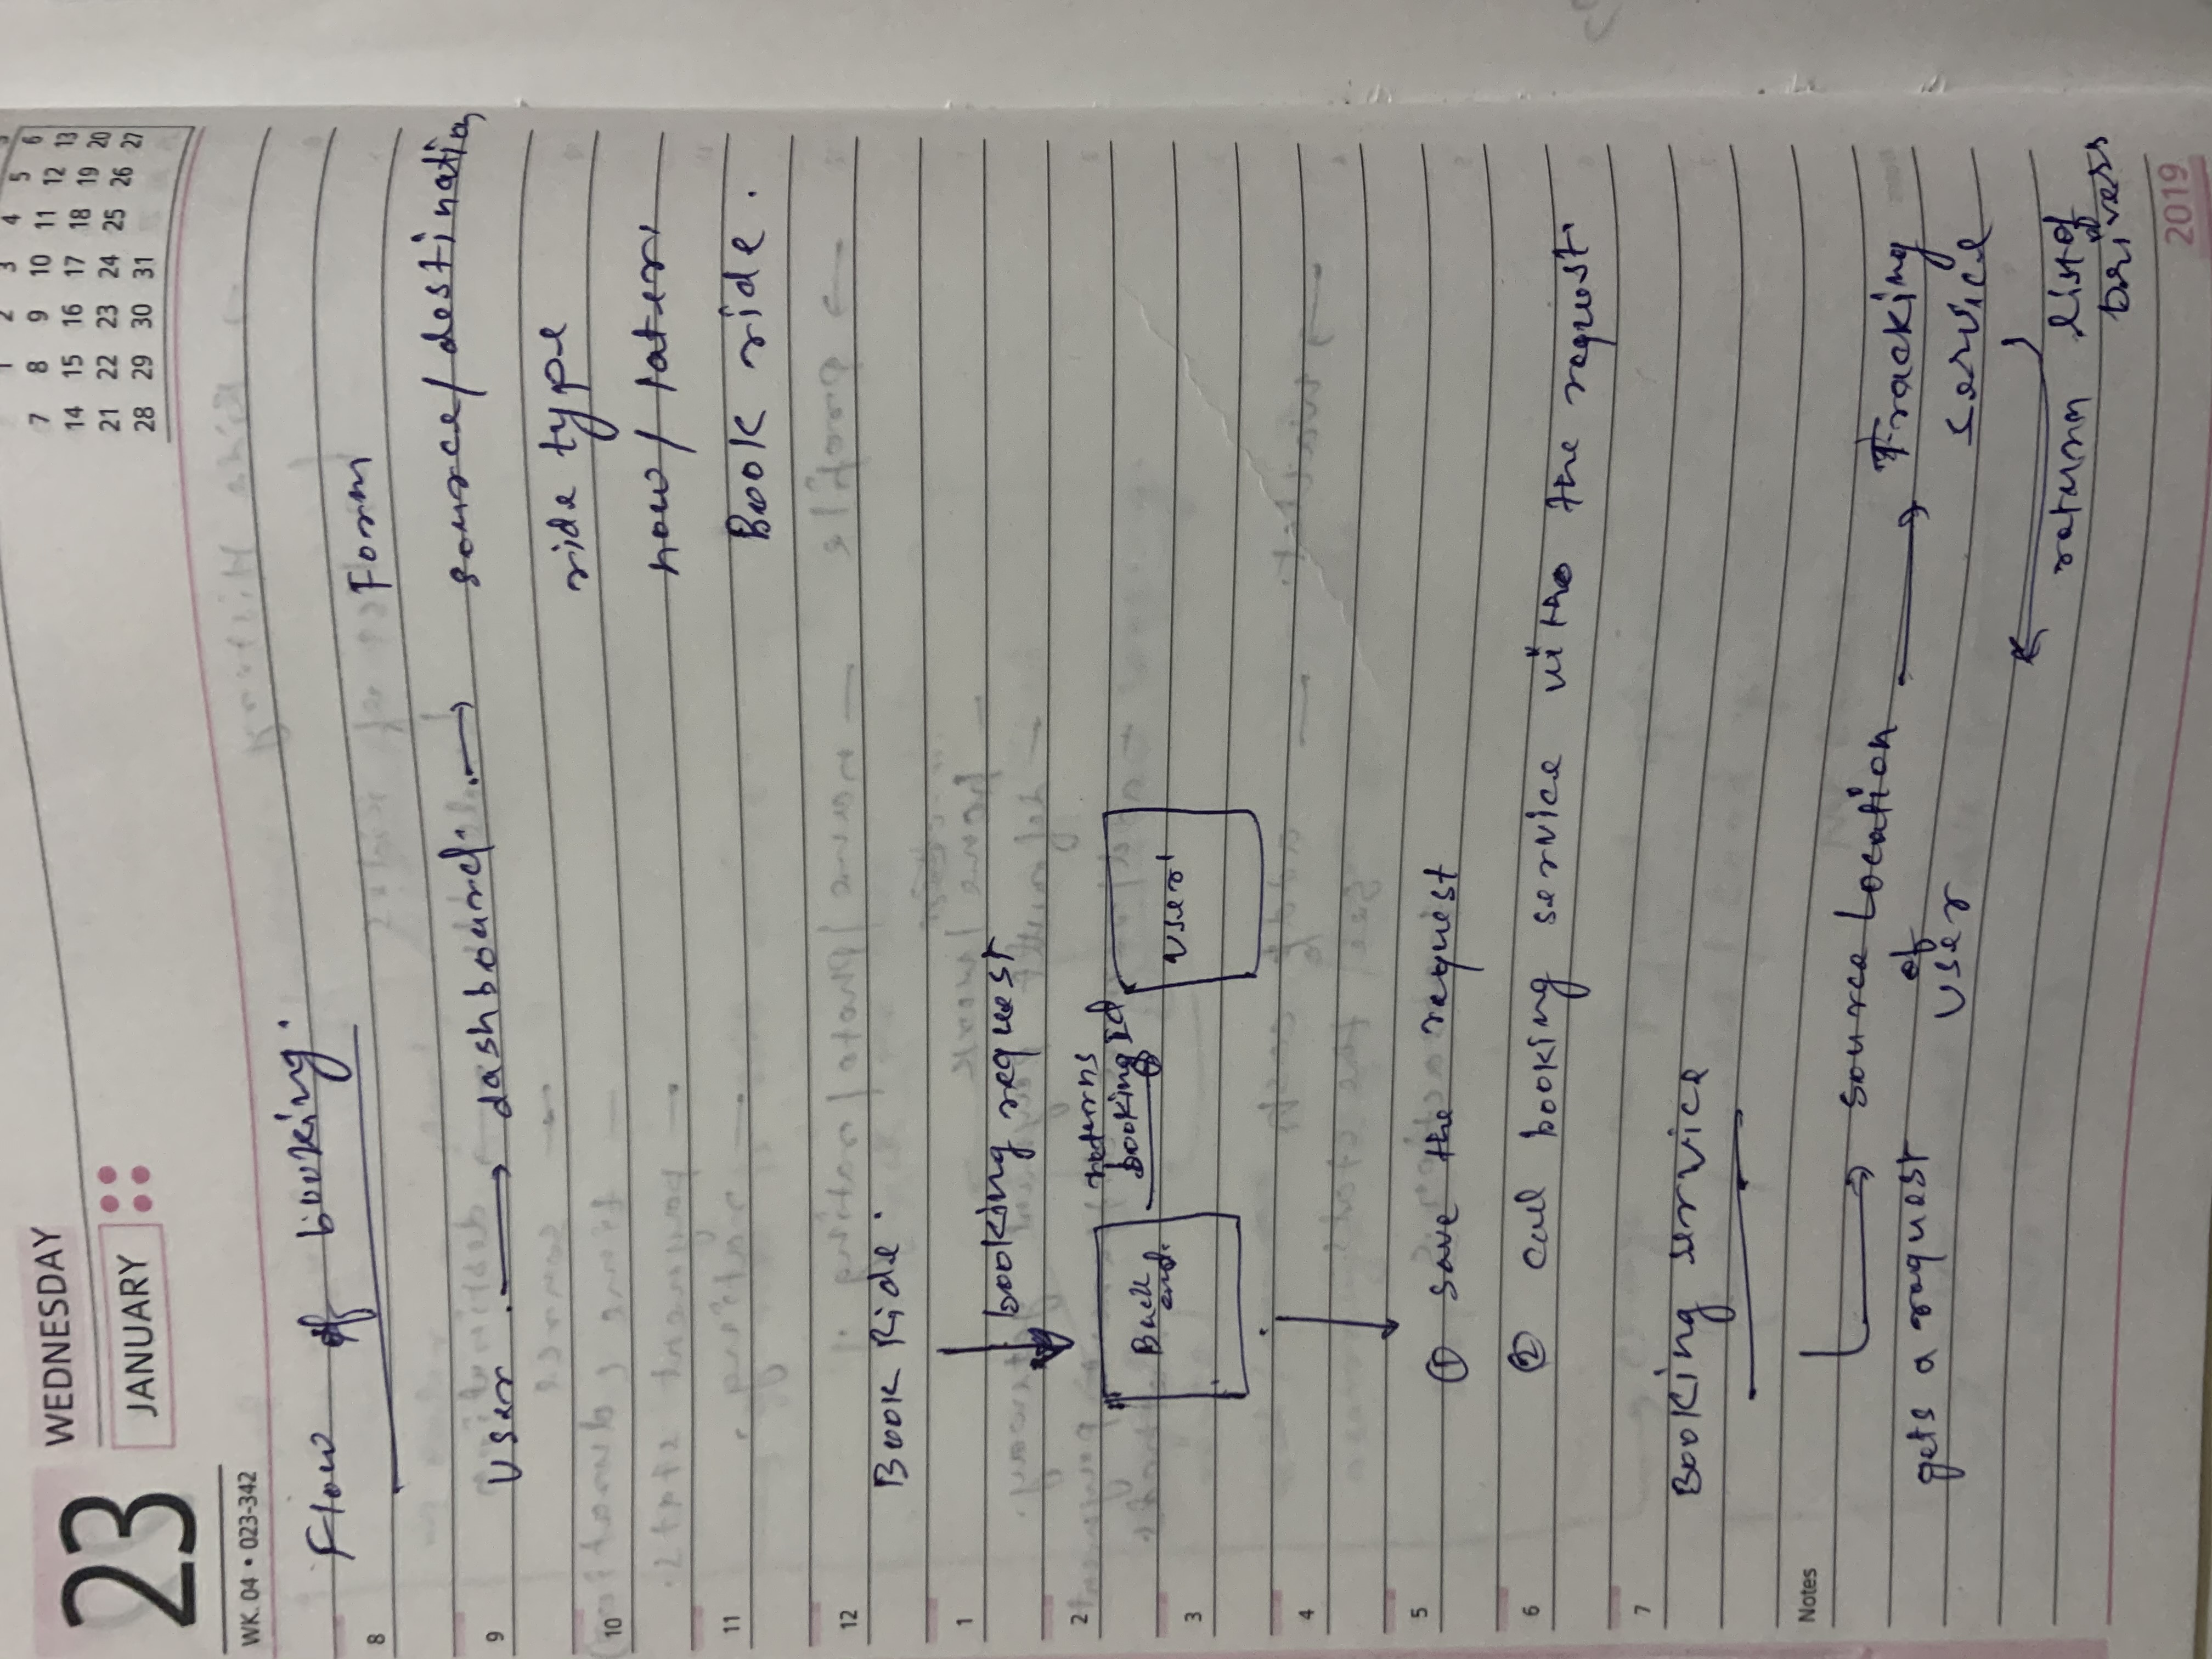 23 WEDNESDAY
JANUARY
WK. 04 • 023-342
1 2 3 4 5 6
7 8 9 10 11 12 13
14 15 16 17 18 19 20
21 22 23 24 25 26 27
28 29 30 31
Flow of booking.
8
Form
9 User → dashboard. → source/destination
10 ride type
now/later
11 Book ride.
12
Book Ride.
1
booking request
2 returns
booking id
3 Back end. User
4
5
① save the request
6
② call booking service with the request
7
Booking service
Notes
source location → Tracking
gets a request of service
user
return list of
drivers
2019